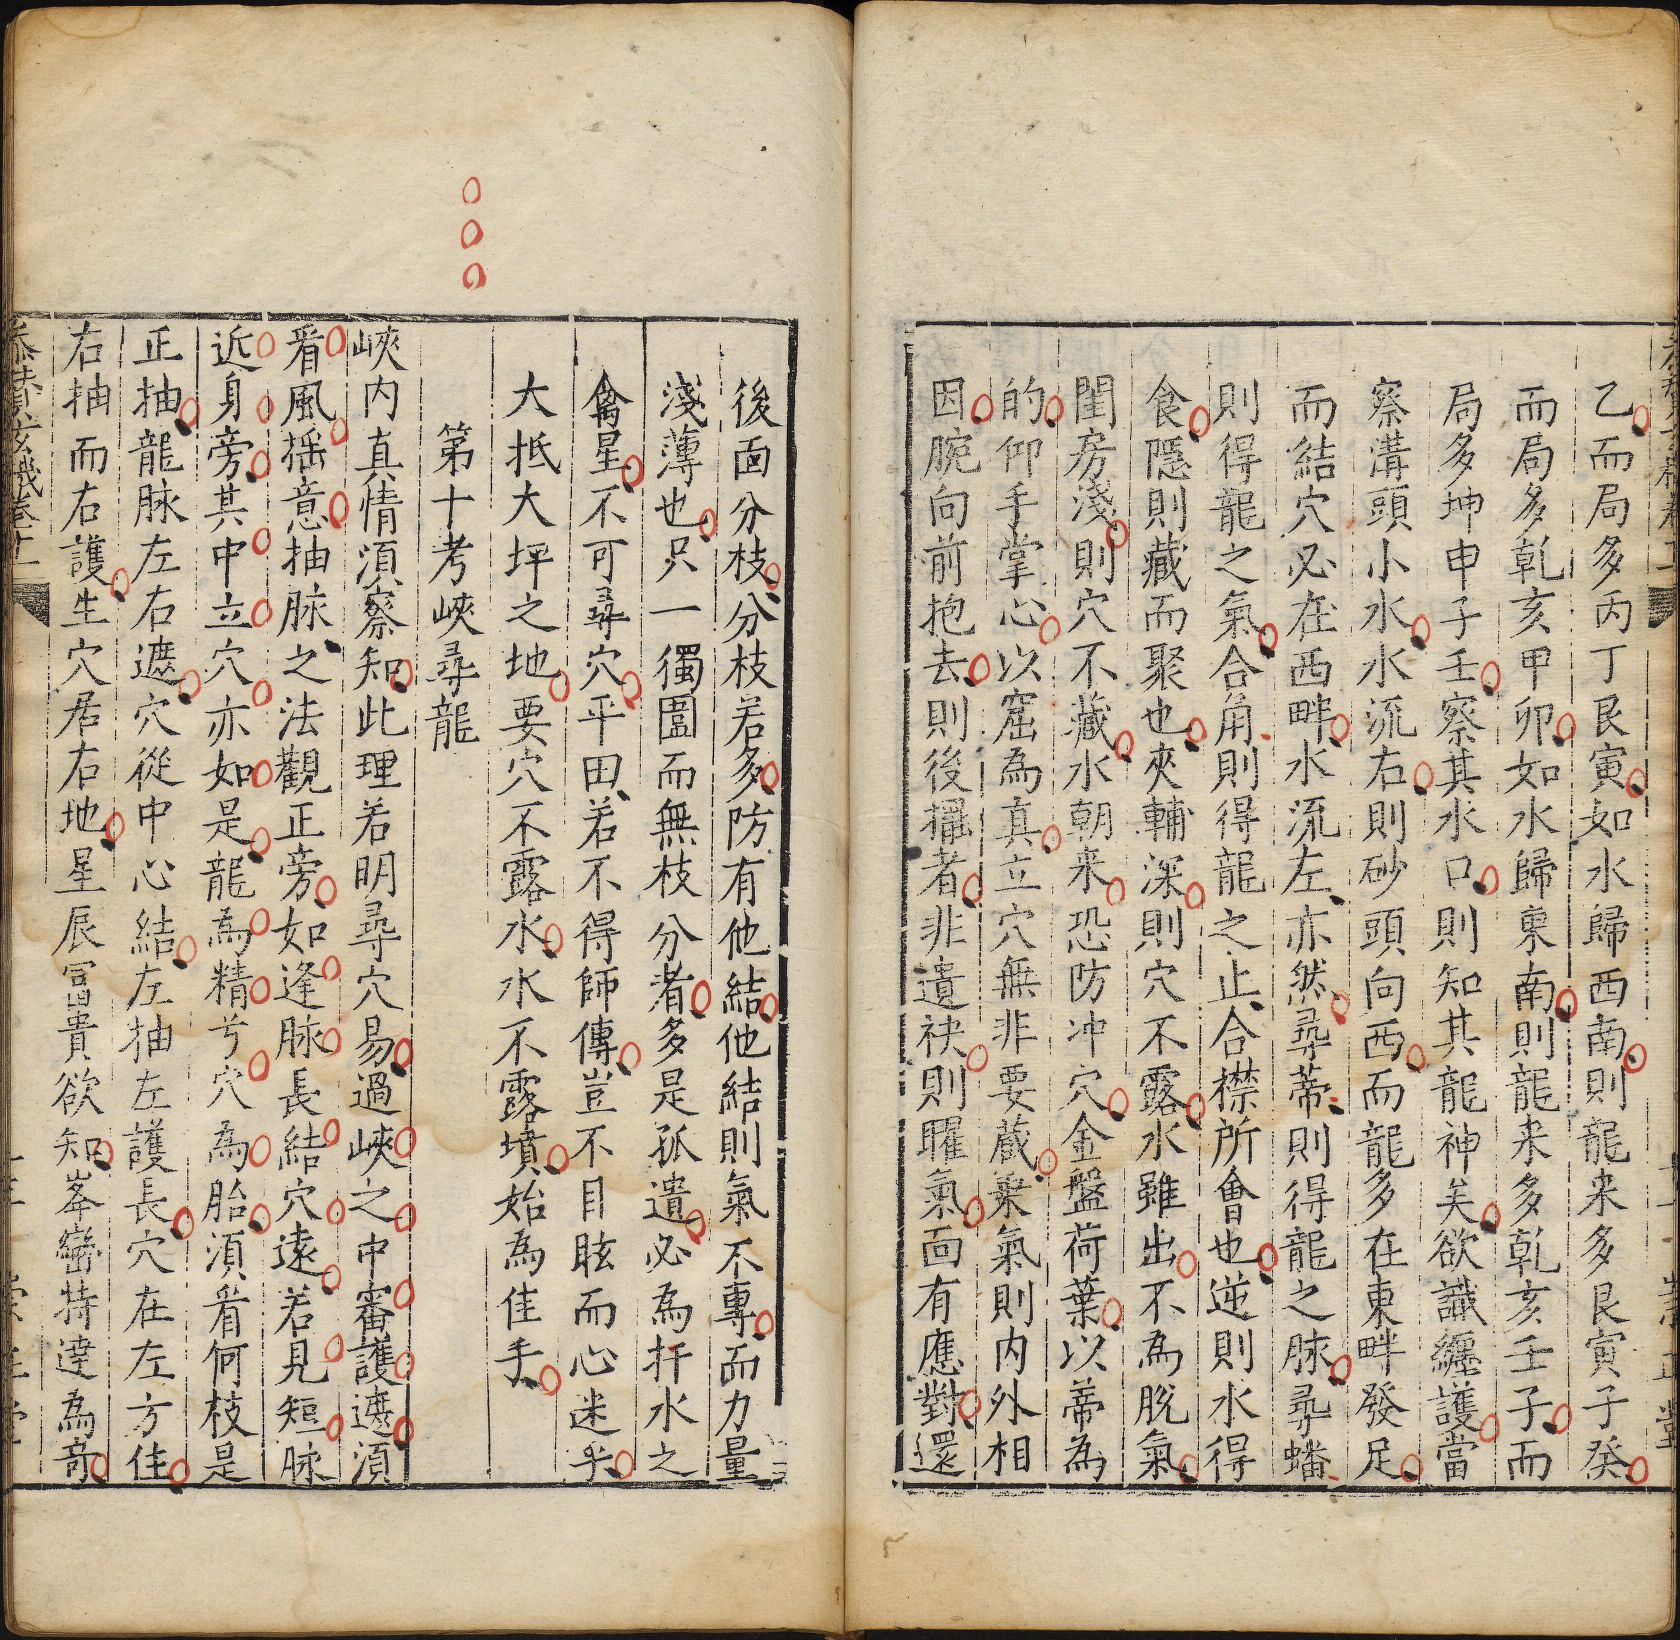 乙而局多丙丁艮寅如水歸西南則龍来多艮寅子癸
而局多乹亥甲卯如水歸東南則龍来多乹亥壬子而
局多坤申子壬察其水口則知其龍神矣欲識纏護當
察溝頭小水水流右則砂頭向西而龍多在東畔發足
而結穴必在西畔水流左亦然尋蒂則得龍之脉尋蟠
則得龍之氣合角則得龍之止合襟所會也逆則水得
食隱則藏而聚也夾輔深則穴不露水雖出不為脫氣
閨房淺則穴不藏水朝来恐防冲穴金盤荷葉以蒂為
的仰手掌心以窟為真立穴無非要藏乗氣則内外相
因腕向前抱去則後攝者非遺袂則曜氣面有應對還
後面分枝分枝若多防有他結他結則氣不專而力量
淺薄也只一獨圓而無枝分者多是孤遺必為扞水之
禽星不可尋穴平田若不得師傳豈不目眩而心迷乎
大抵大坪之地要穴不露水水不露墳始為佳手
第十考峽尋龍
峽内真情湏察知此理若明尋穴易過峽之中審護遮湏
看風揺意抽脉之法觀正旁如逢脉長結穴遠若見短脉
近身旁其中立穴亦如是龍為精兮穴為胎湏看何枝是
正抽龍脉左右遮穴從中心結左抽左護長穴在左方佳
右抽而右護生穴居右地星辰冨貴欲知峯巒特達為竒